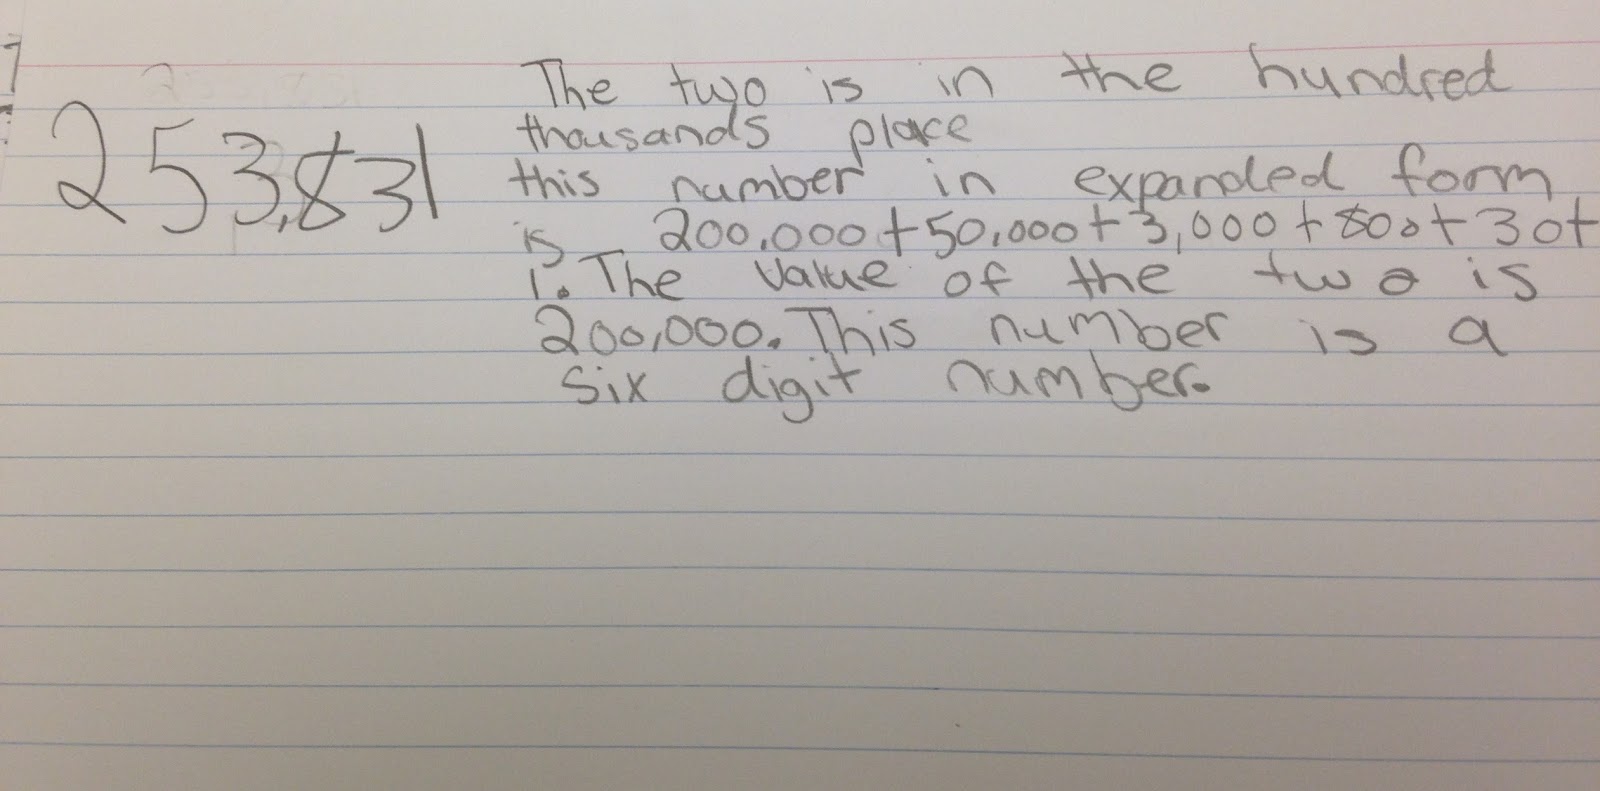 253,831
The two is in the hundred
thousands place
this number in expanded form
is 200,000+50,000+3,000+800+30+
1. The value of the two is
200,000. This number is a
six digit number.